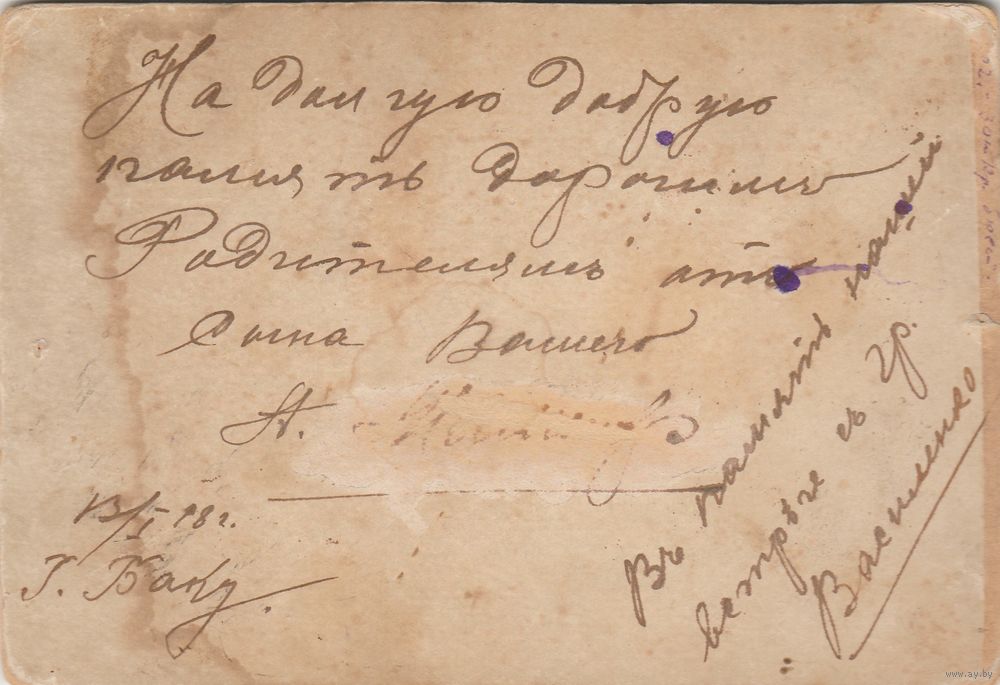 На долгую добрую
память дорогимъ
Родителямъ отъ
сына Вашего
А.
13/I 18 г.
Г. Баку.
Въ память нашей
встрѣче съ гр.
Василенко
www.ay.by